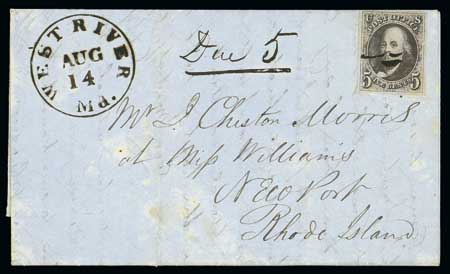 WEST RIVER
AUG
14
Md.
Due 5
U S
POST OFFICE
5 FIVE CENTS 5
Mr J. Cheston Morris
at Miss Williams
New Port
Rhode Island